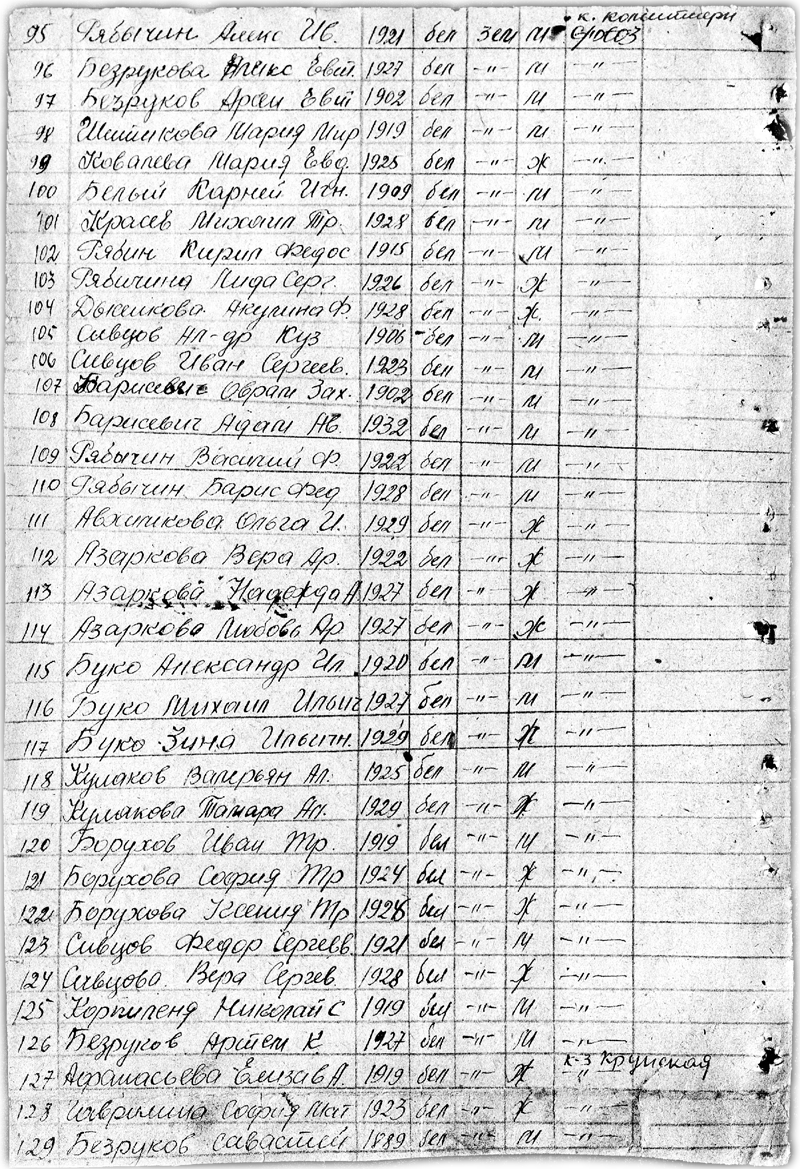 95 Рябычин Алекс Ив. 1921 бел зем м к. коминтерн
96 Безрукова Алекс Евт. 1927 бел -"- м -"-
97 Безруков Арсен Евт 1902 бел -"- м -"-
98 Шишикова Мария Мир 1919 бел -"- м -"-
99 Ковалева Мария Евд. 1925 бел -"- ж -"-
100 Белый Карней Игн. 1909 бел -"- м -"-
101 Красев Михаил Тр. 1928 бел -"- м -"-
102 Рябин Кирил Федос 1915 бел -"- м -"-
103 Рябичина Лида Серг. 1926 бел -"- ж -"-
104 Акулина Ф. 1928 бел -"- ж. -"-
105 Сивцов Ал-др Куз 1906 бел -"- м -"-
106 Сивцов Иван Сергеев. 1923 бел -"- м -"-
107 Барисевич Обрам Зах. 1902 бел -"- м -"-
108 Барисевич Адам Аб. 1932 бел -"- м -"-
109 Рябычин Василий Ф. 1922 бел -"- м -"-
110 Рябычин Барис Фед 1928 бел -"- м -"-
111 Ольга И. 1929 бел -"- ж -"-
112 Азаркова Вера Ар. 1922 бел -"- ж -"-
113 Азаркова Надежда А 1927 бел -"- ж -"-
114 Азаркова Любовь Ар 1927 бел -"- ж -"-
115 Буко Александр Ил. 1920 бел -"- м -"-
116 Буко Михаил Ильич 1927 бел -"- м -"-
117 Буко Зина Ильичн. 1929 бел -"- ж -"-
118 Кулаков Валерьян Ал. 1925 бел -"- м -"-
119 Кулакова Тамара Ал. 1929 бел -"- ж -"-
120 Борухов Иван Тр. 1919 бел -"- м -"-
121 Борухова София Тр 1924 бел -"- ж -"-
122 Борухова Ксения Тр 1926 бел -"- ж -"-
123 Сивцов Федор Сергеев. 1921 бел -"- м -"-
124 Сивцова Вера Сергев. 1928 бел -"- ж -"-
125 Николай С 1919 бел -"- м -"-
126 Безруков Артем К. 1927 бел -"- м -"-
127 Афанасьева Елизав А. 1919 бел -"- ж к-з Крупская
128 Гаврилина София Мат 1923 бел -"- ж -"-
129 Безруков Савастей 1889 бел -"- м -"-